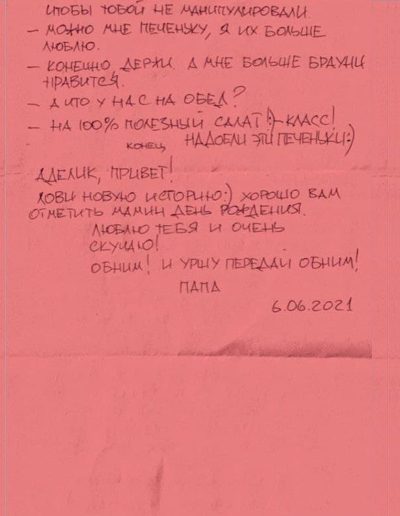 чтобы тобой не манипулировали.
– Можно мне печеньку, я их больше
люблю.
– Конешно, держи. А мне больше брауни
нравится.
– А что у нас на обед?
– На 100% полезный салат :) – Класс!
конец Надоели эти печеньки :)
Аделик, привет!
Лови новую историю :) Хорошо вам
отметить мамин день рождения.
Люблю тебя и очень
скучаю!
Обним! И Уршу передай обним!
Папа
6.06.2021